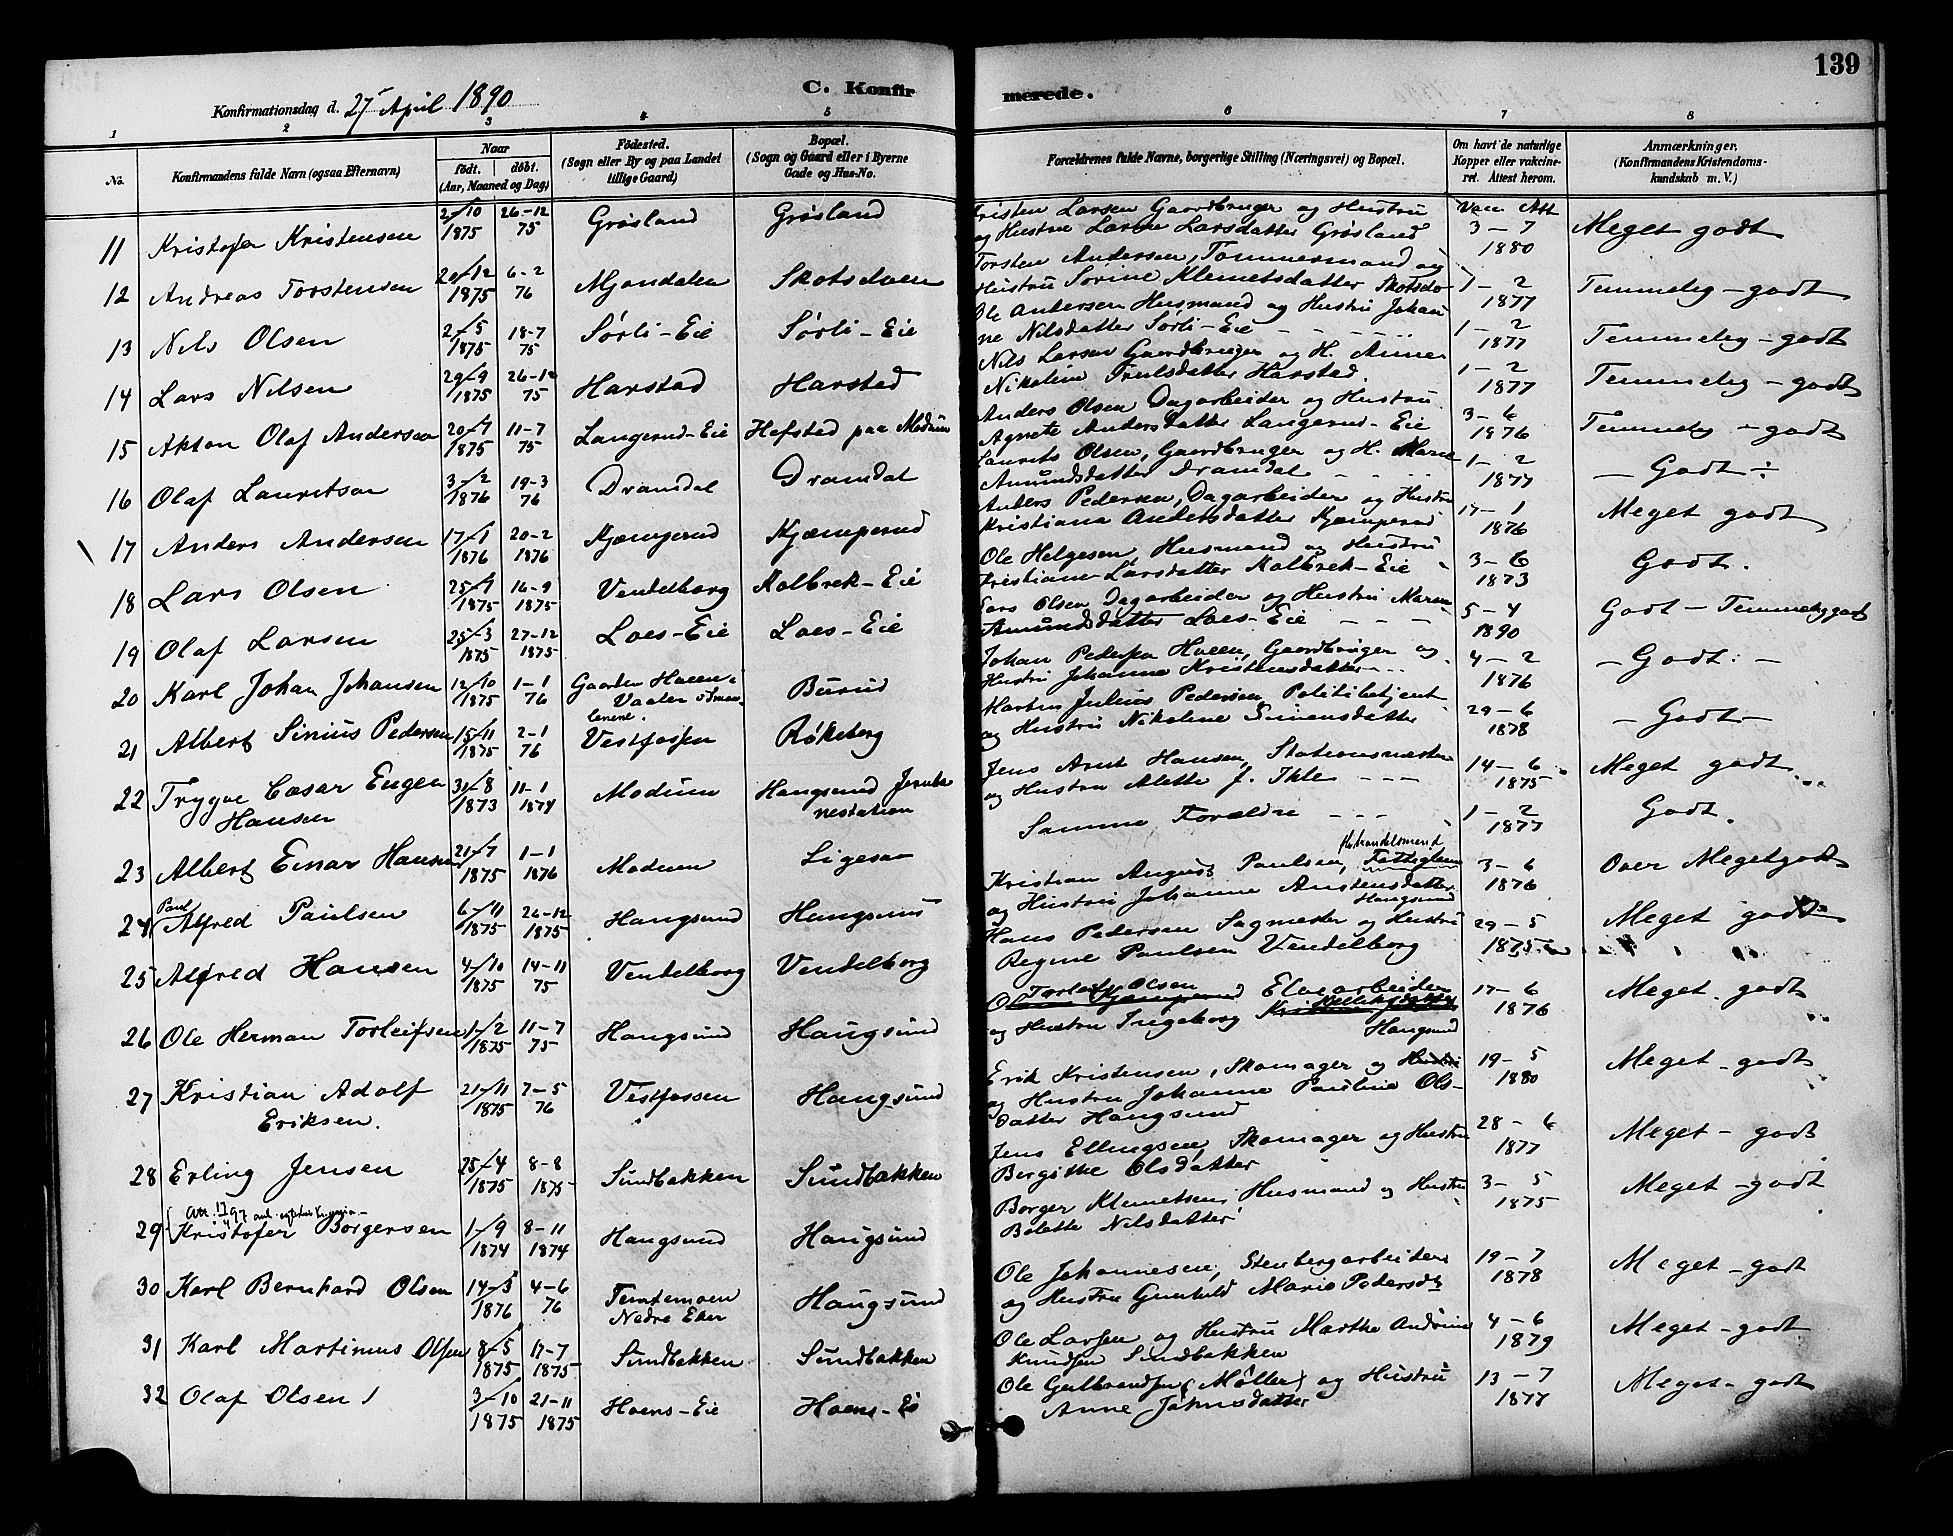 139
C. Konfirmerede.
Konfirmationsdag d. 27 April 1890
1 2 3 4 5 6 7 8
No.
Konfirmandens fulde Navn (ogsaa Efternavn)
Naar
født. døbt.
(Aar, Maaned og Dag)
Fødested.
(Sogn eller By og paa Landet
tillige Gaard)
Bopæl.
(Sogn og Gaard eller i Byerne
Gade og Hus-No.
Forældrenes fulde Navne, borgerlige Stilling (Næringsvei) og Bopæl.
Om havt de naturlige
Kopper eller vakcine-
ret. Attest herom.
Anmærkninger.
(Konfirmandens Kristendoms-
kundskab m. V.)
Vacc Att
11 Kristofer Kristensen 2/10 1875 26-12 75 Grøsland Grøsland
Kristen Larsen Gaardbruger og Hustru
og Hustru Larsdatter Grøsland 3-7 1880 Meget godt
12 Andreas Torstensen 20/12 1875 6-2 76 Mjøndalen
Torsten Andersen, Tømmermand og
Hustru Sorine Klemetsdatter 1-2 1877 Temmelig-godt
13 Nils Olsen 2/5 1875 18-7 75 Sørli-Eie Sørli-Eie
Ole Andersen Husmand og Hustru Johan
ne Nilsdatter Sørli-Eie 1-2 1877 Temmelig-godt
14 Lars Nilsen 29/9 1875 26-12 75 Harstad Harstad
Nils Larsen Gaardbruger og H. Anne
Nikoline Trulsdatter Harstad. 1-2 1877 Temmelig-godt
15 Olaf Andersen 20/7 1875 11-7 75 Langerud-Eie Hofstad paa Modum
Anders Olsen Dagarbeider og Hustru
Agnete Andersdatter Langerud-Eie 3-6 1876 Temmelig-godt
16 Olaf Lauritsen 3/2 1876 19-3 76 Dramdal Dramdal
Laurits Olsen, Gaardbruger og H. Maren
Amundsdatter Dramdal 1-2 1877 - Godt ÷
17 Anders Andersen 17/1 1876 20-2 1876 Kjæmperud Kjæmperud
Anders Pedersen, Dagarbeider og Hustru
Kristiana Andersdatter Kjæmperud 17-1 1876 Meget godt
18 Lars Olsen 25/7 1875 16-9 1875 Vendelborg Kolbrek-Eie
Ole Helgesen, Husmand og Hustru
Kristiane Larsdatter Kolbrek-Eie 3-6 1873 Godt.
19 Olaf Larsen 25/3 1875 27-12 1875 Loes-Eie Loes-Eie
Lars Olsen Dagarbeider og Hustru Maren
Amundsdatter Loes-Eie 5-4 1890 Godt - Temmelig godt
20 Karl Johan Johansen 12/10 1875 1-1 76 Gaarden Haeen i Burud
Johan Pedersen Haeen, Gaardbruger og
Hustru Johanne Kristensdatter 4-2 1876 - Godt. -
21 Albert Sinius Pedersen 15/11 1875 2-1 76 Vestfossen Røkeberg
Martin Julius Pedersen, Politibetjent
og Hustru Nikoline Simensdatter 29-6 1878 - Godt -
22 Trygve Cæsar Eugen
Hansen 31/8 1873 11-1 1874 Modum Haugsund Jernba
nestation
Jens Arnt Hansen, Stationsmester
og Hustru Alette f. Ihle 14-6 1875 Meget godt
23 Albert Einar Hansen 21/7 1875 1-1 1876 Modum Ligesaa
Samme Forældre 1-2 1877 Godt.
24 Paul Alfred Paulsen 6/11 1875 26-12 1875 Haugsund Haugsund
Kristian August Paulsen,
og Hustru Johanne Anstensdatter
Haugsund 3-6 1876 Over Meget godt
25 Alfred Hansen 4/10 1875 14-11 75 Vendelborg Vendelborg
Hans Pedersen Sagmester og Hustru
Regine Paulsen Vendelborg 29-5 1875 Meget godt
26 Ole Herman Torleifsen 1/2 1875 11-7 75 Haugsund Haugsund
Torleif Olsen Elvearbeider
og Hustru Ingeborg
Haugsund 17-6 1876 Meget godt
27 Kristian Adolf
Eriksen. 21/11 1875 7-5 76 Vestfossen Haugsund
Erik Kristensen, Skomager og Hustru
og Hustru Johanne Pauline Ols-
datter Haugsund 19-5 1880 Meget-godt
28 Erling Jensen 25/4 1875 8-8 1875 Sundbakken Sundbakken
Jens Ellingsen, Skomager og Hustru
Bergitte Olsdatter 28-6 1877 Meget-godt
29 Kristofer Borgersen 1/9 1874 8-11 1874 Haugsund Haugsund
Borger Klemetsen, Husmand og Hustru
Bolette Nilsdatter 3-5 1875 Meget-godt
30 Karl Bernhard Olsen 14/3 1876 4-6 76 Nedre Eker Haugsund
Ole Johannesen, Stenbergarbeider
og Hustru Gunhild Marie Pedersd 19-7 1878 Meget-godt
31 Karl Martinius Olsen 8/5 1875 17-7 1875 Sundbakken Sundbakken
Ole Larsen og Hustru Marthe Andrine
Knudsen Sundbakken 4-6 1879 Meget-godt
32 Olaf Olsen 3/10 1875 21-11 1875 Hoens-Eie Hoens-Ei
Ole Gulbrandsen (Møller) og Hustru
Anne Johnsdatter 13-7 1877 Meget-godt